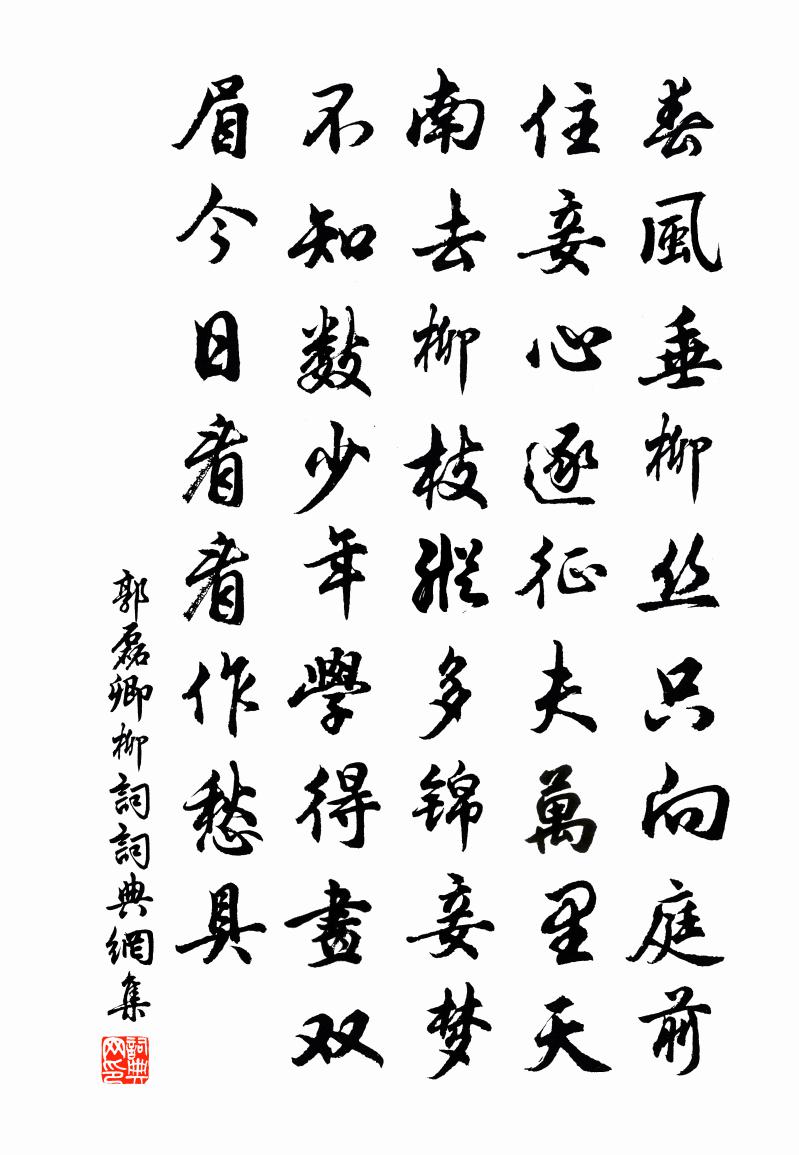 春風垂柳丝只向庭前
住妾心逐征夫萬里天
南去柳枝纵多錦妾梦
不知数少年學得畫双
眉今日看看作愁具
郭磊卿柳詞詞典網集
詞典网印